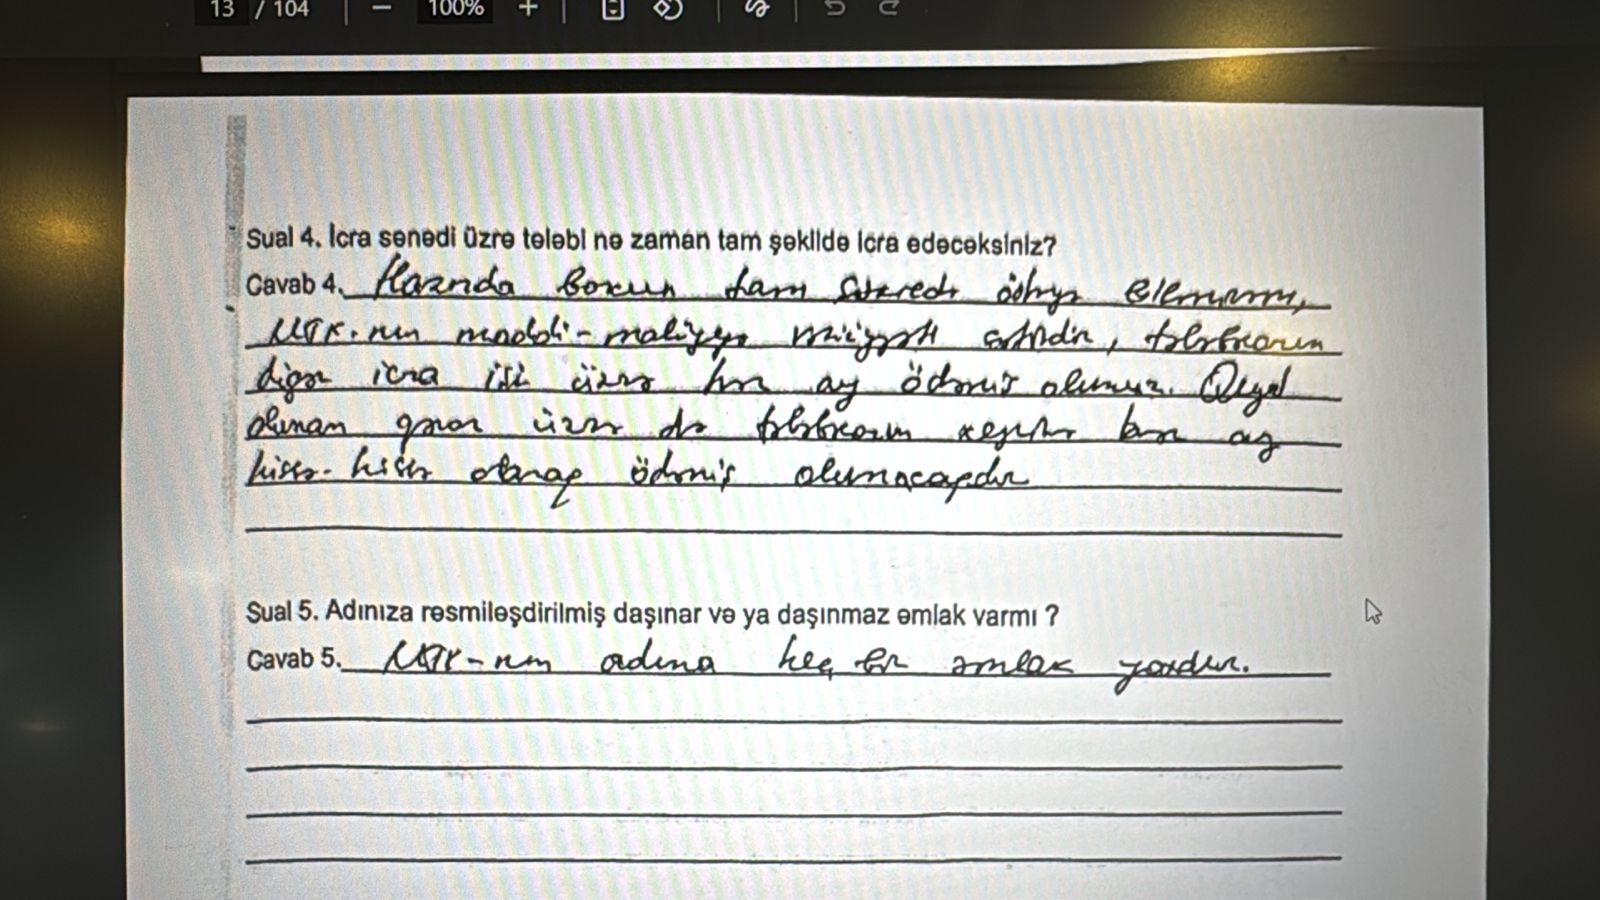 13 / 104 100%
Sual 4. İcra sənədi üzrə tələbi nə zaman tam şəkildə icra edəcəksiniz?
Cavab 4. Hazırda borcun tam surətdə ödəyə bilmərəm,
MTK-nın maddi-maliyyə vəziyyəti çətindir, tələbkarın
digər icra işi üzrə hər ay ödəniş olunur. Qeyd
olunan qərar üzrə də tələbkarın xeyrinə hər ay
hissə-hissə olaraq ödəniş olunacaqdır
Sual 5. Adınıza rəsmiləşdirilmiş daşınar və ya daşınmaz əmlak varmı ?
Cavab 5. MTK-nın adına heç bir əmlak yoxdur.